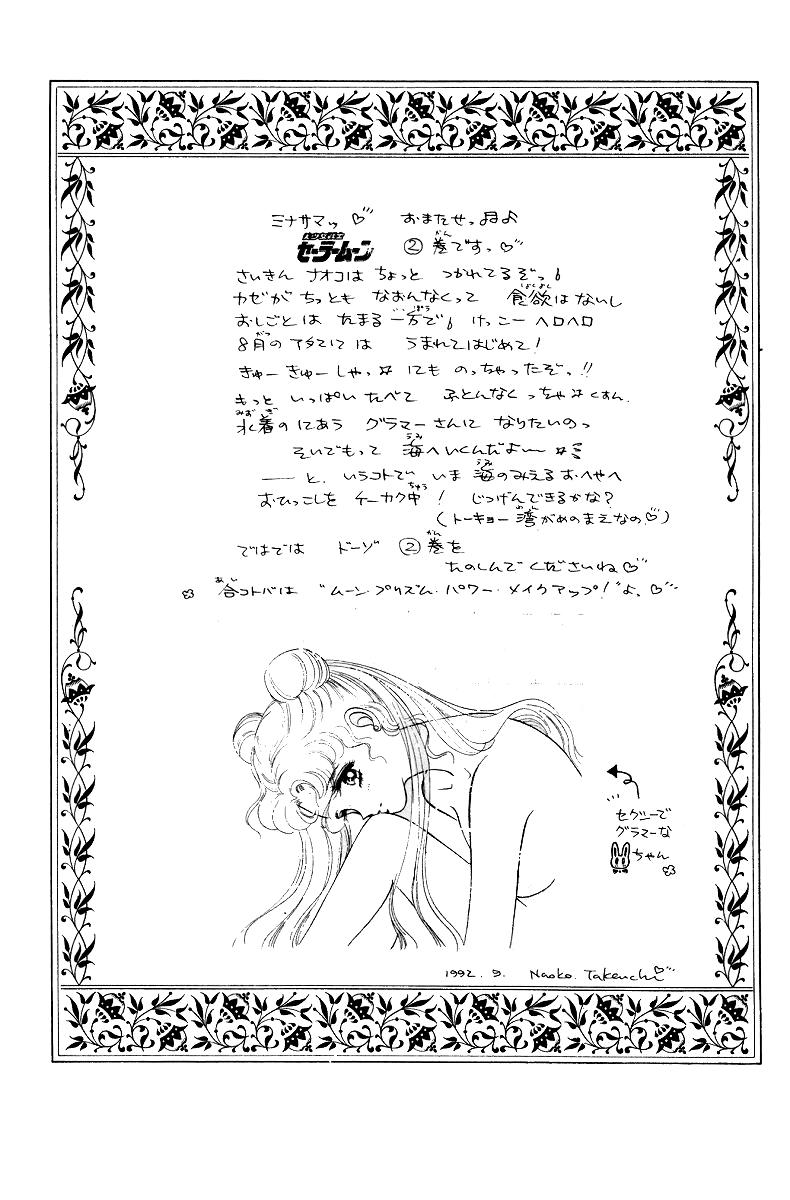 ミナサマッ♡ おまたせっ♫♪
美少女戦士
セーラームーン ②巻ですっ♡
さいきん ナオコは ちょっと つかれてるぞっ
カゼが ちっとも なおんなくって 食欲はないし
おしごとは たまる一方で けっこーヘロヘロ
8月のアタマには うまれてはじめて!
きゅーきゅーしゃっ☆にも のっちゃったぞっ!!
もっと いっぱい たべて ふとんなくっちゃ☆くすん
水着のにあう グラマーさんに なりたいのっ
そいでもって 海へいくんだよ〜☆
――と、いうコトで いま 海のみえるおへやへ
おひっこしを チーカク中! じつげんできるかな?
(トーキョー湾がめのまえなの♡)
ではでは ドーゾ ②巻を
たのしんでくださいね♡
合コトバは “ムーン・プリズム・パワー・メイクアップ!”よ、♡
セクシーで
グラマーな
ちゃん
1992.9. Naoko.Takeuchi♡